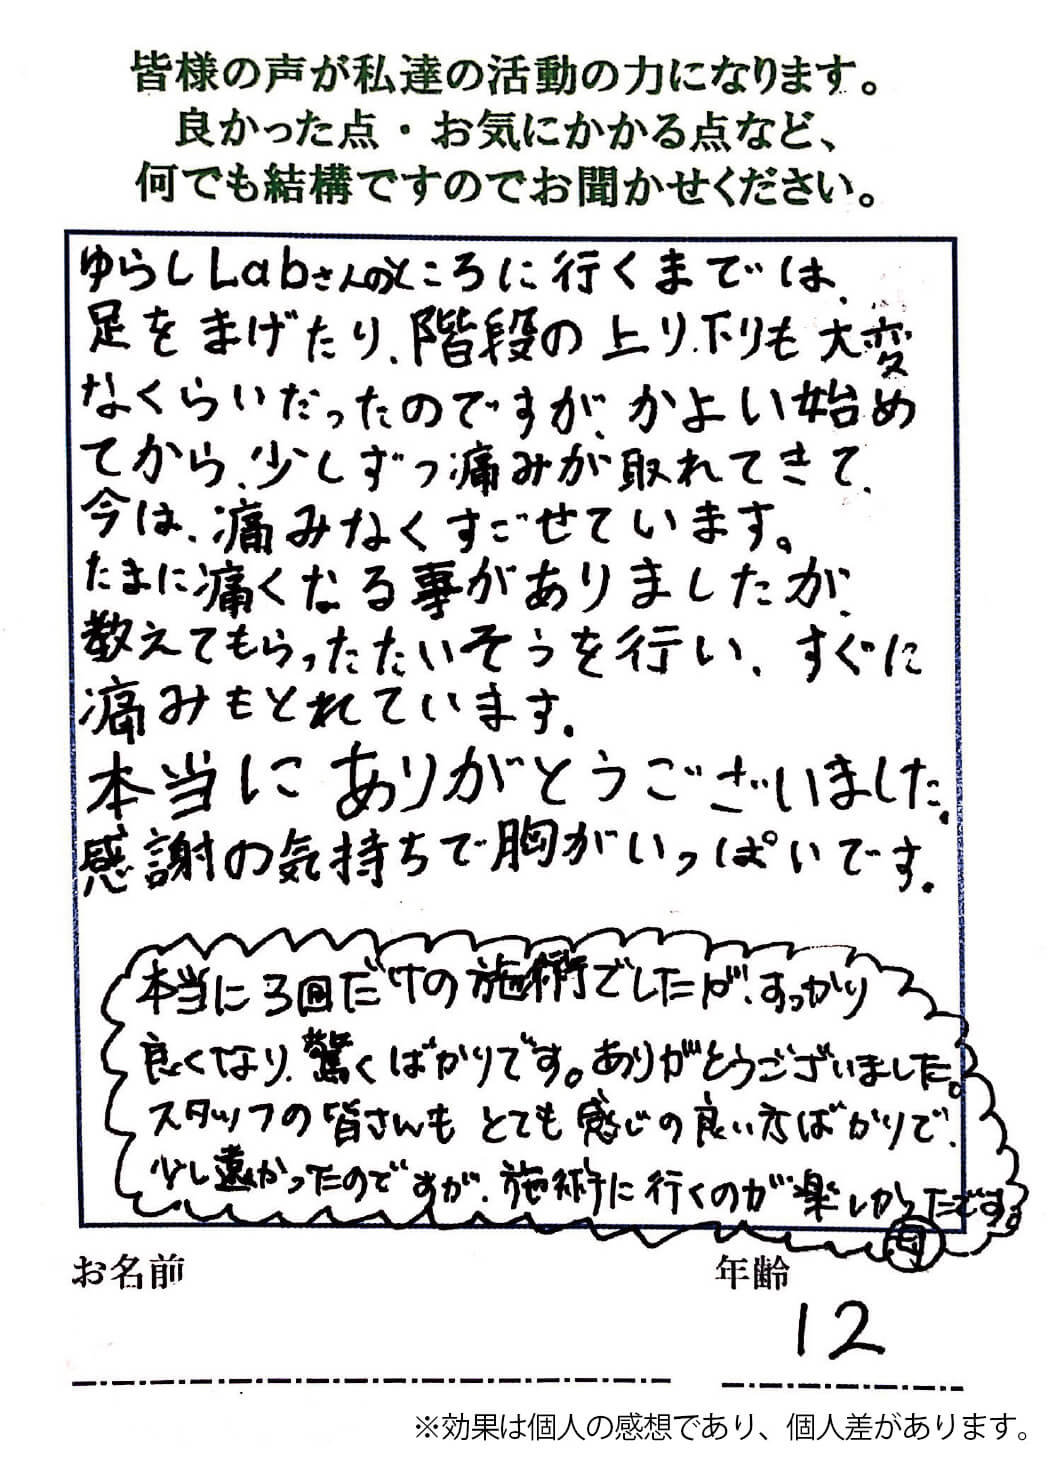 皆様の声が私達の活動の力になります。
良かった点・お気にかかる点など、
何でも結構ですのでお聞かせください。
ゆらしLabさんのところに行くまでは、
足をまげたり、階段の上り、下りも大変
なくらいだったのですが、かよい始め
てから、少しずつ痛みが取れてきて、
今は、痛みなくすごせています。
たまに痛くなる事がありましたが、
教えてもらったたいそうを行い、すぐに
痛みもとれています。
本当にありがとうございました。
感謝の気持ちで胸がいっぱいです。
本当に3回だけの施術でしたが、すっかり
良くなり、驚くばかりです。ありがとうございました。
スタッフの皆さんもとても感じの良い方ばかりで、
少し遠かったのですが、施術に行くのが楽しかったです。
母
お名前
年齢
12
※効果は個人の感想であり、個人差があります。